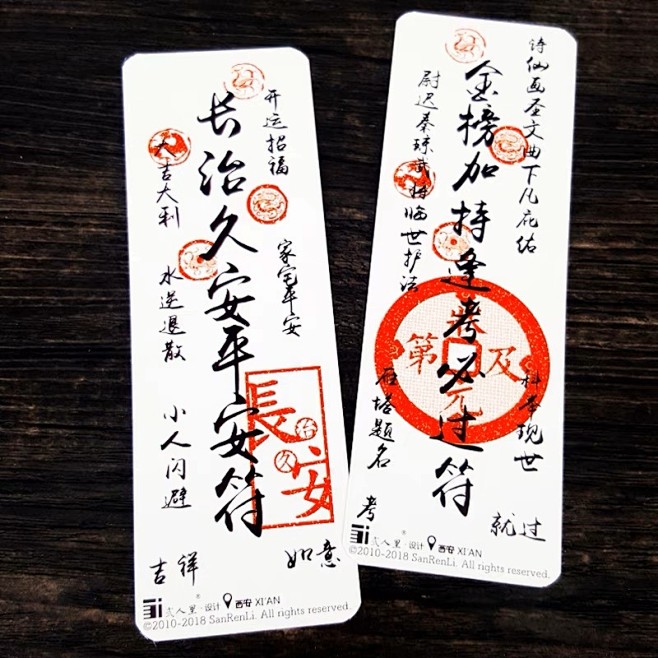 开运招福
长治久安平安符
大吉大利
家宅平安
水逆退散
小人闪避
長治久安
吉祥
如意
三人里·设计 西安 XI'AN
©2010-2018 SanRenLi. All rights reserved.
诗仙画圣文曲下凡庇佑
金榜加持逢考必过符
尉迟秦琼武将临世护法
第 及
元
雁塔题名
科举现世
考
就过
设计 西安 XI'AN
©2010-2018 SanRenLi. All rights reserved.